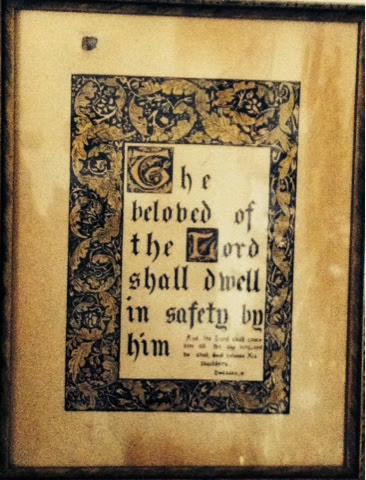 The
beloved of
the Lord
shall dwell
in safety by
him
And the Lord shall cover
him all the day long, and
he shall dwell between his
shoulders